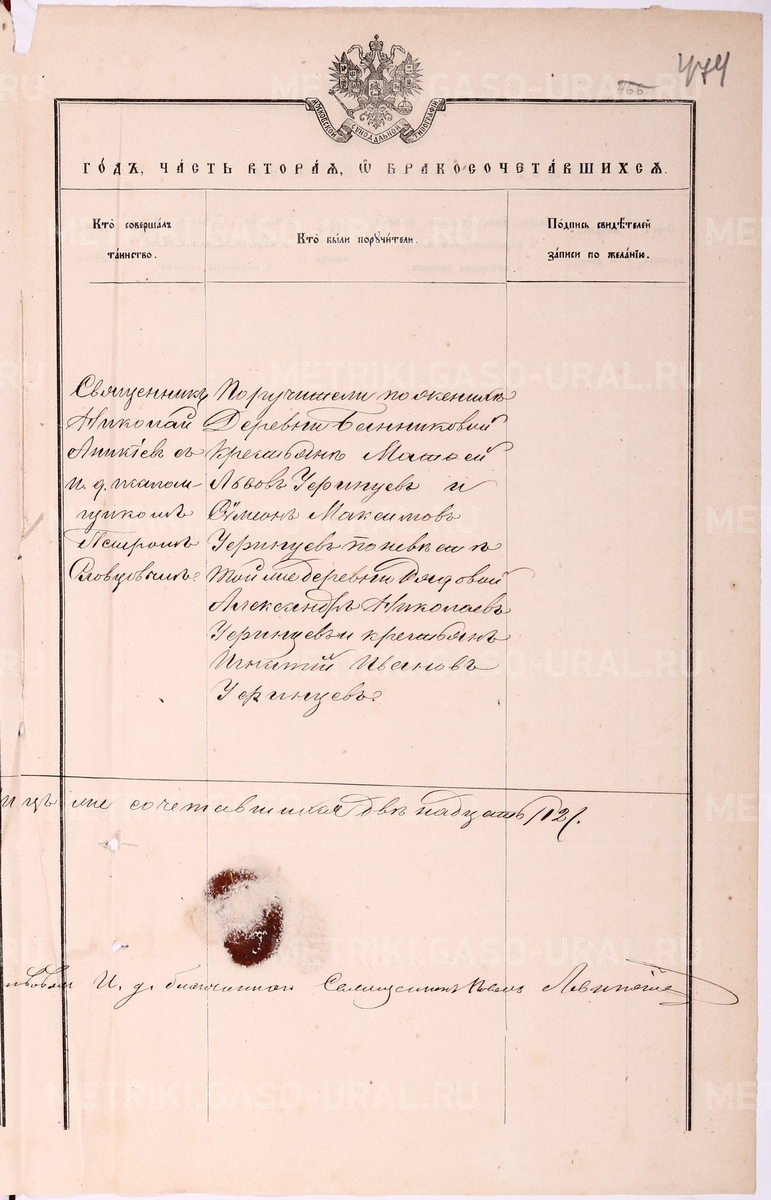 474
466
МОСКОВСКОЙ СѴНОДАЛЬНОЙ ТИПОГРАФІИ
ГО́ДЪ, ЧА́СТЬ ВТОРА́Я, Ѡ БРАКОСОЧЕТА́ВШИХСЯ.
Кто̀ соверша́лъ
та́инство.
Кто̀ бы́ли поручи́тели.
По́дпись свидѣ́телей
за́писи по жела́нію.
Священникъ
Николай
Аникіевъ съ
и. д. псалом
щикомъ
Петромъ
Словцовымъ.
Поручители по женихѣ
Деревни Банниковой
крестьяне Матѳей
Львовъ Черинцевъ и
Сѵмеонъ Максимовъ
Черинцевъ по невѣстѣ
той же деревни рядовой
Александръ Николаевъ
Черинцевъ и крестьянъ
Игнатій Ивановъ
Черинцевъ.
же сочетавшихся двѣнадцать /12/.
И. д. благочиннаго Священникъ
METRIKI.GASO-URAL.RU